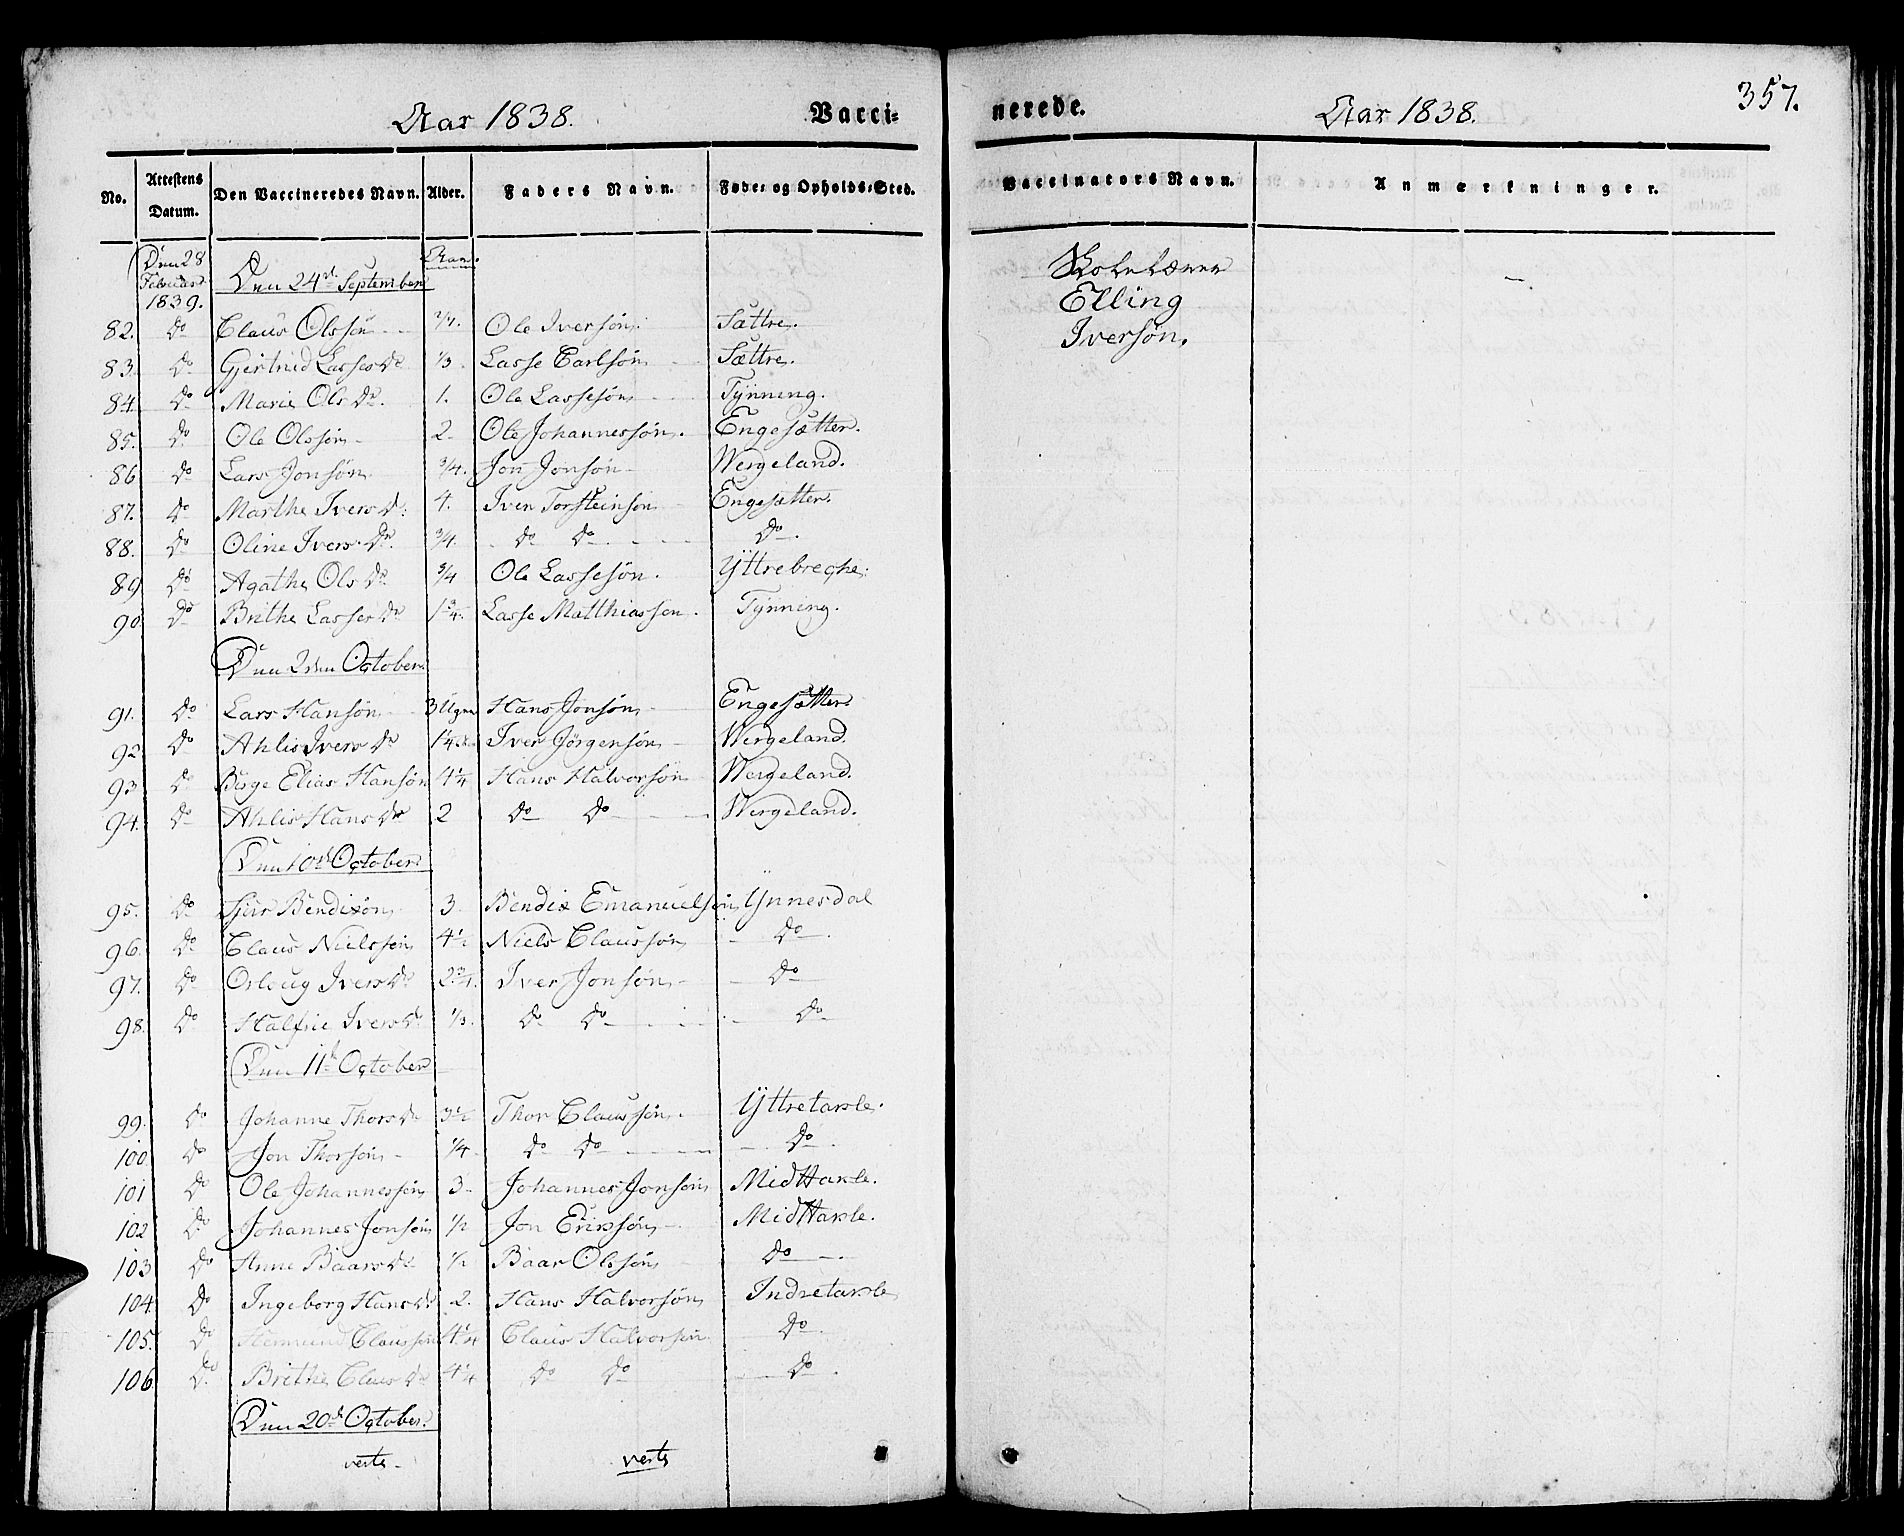 Aar 1838. Vacci-
No. Attestens Datum. Den Vaccineredes Navn. Alder. Faders Navn. Føde- og Opholds-Sted.
Den 28 Februar 1839. Den 24de September Aar.
82. do Claus Olssøn 3/4. Ole Iversøn. Sættre.
83. do Gjertrud Lasses Dr 1/3. Lasse Carlsøn Sættre.
84. do Marie Ols Dr. 1. Ole Lassesøn Tÿnning.
85. do Ole Olssøn 2. Ole Johannessøn. Engesætter.
86 do Lars Jonsøn 3/4. Jon Jonsøn Wergeland.
87. do Marthe Ivers Dr. 4. Iver Torsteinsøn Engesætter.
88. do Oline Ivers Dr. 3/4. do do do.
89 do Agathe Ols Dr 3/4 Ole Lassesøn. Ÿttrebreche.
90 do Brithe Lasses Dr 1 3/4. Lasse Matthiassen. Tÿnning.
Den 2den October.
91. do Lars Hansøn 3 Ugur Hans Jonsøn Engesætter
92. do Ahlis Ivers Dr 1/4 Iver Jørgensøn Wergeland.
93 do Børge Elias Hansøn 4 1/4 Hans Halvorsøn Wergeland.
94. do Ahlis Hans Dr 2 do do Wergeland.
Den 10de October
95. do Sjur Bendixøn 3 Bendix Emanuelsøn Ynnesdal
96. do Claus Nielssøn 4 1/2 Niels Claussøn do.
97. do Orloug Ivers Dr 2 3/4. Iver Jonsøn do
98. do Halfrie Ivers Dr 1/3. do do do
Den 11te October
99. do Johanne Thors Dr 3 1/2 Thor Claussøn. Ÿttretakle.
100 do Jon Thorsøn 1/4 do do do
101 do Ole Johannessøn 3 Johannes Jonsøn Midttakle.
102 do Johannes Jonsøn 1/2 Jon Erikssøn Midttakle.
103 do Anne Baars Dr 1/2 Baar Olssøn do
104. do Ingeborg Hans Dr 2. Hans Halvorsøn Indretakle
105. do Hermund Claussøn 4 1/4 Claus Halvorsøn do
106 do Brithe Claus Dr 4 1/4 do do do
Den 20de October.
verte verte
nerede. Aar 1838. 357.
Vaccinators Navn. Anmærkninger.
Skolelærer
Elling
Iversøn.